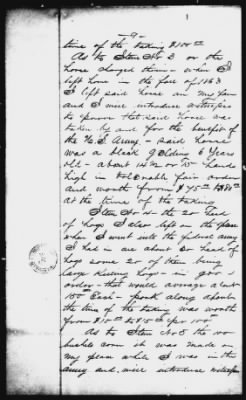 time of the taking $100.00
As to Item No 3 or the
horse charged them - when I
left home in the fall of 1863
I left said horse on my farm
and I will introduce witnesses
to prove that said horse was
taken by and for the benefit of
the U.S. Army - said horse
was a black Gelding 6 years
old - about 14 1/2 or 15 hands
high in tolerable fair order
and worth from $75 to $80
at the time of the taking
Item No 4 the 20 head
of hogs I also left on the place
when I went into the federal army
I had in all about 60 head of
hogs some 20 of them being
large killing hogs - in good
order - that would average about
150 each - pork along about
the time of the taking was worth
from $10 to per 100
As to Item No 5 the 100
bushels corn it was made on
my place while I was in the
army and will introduce